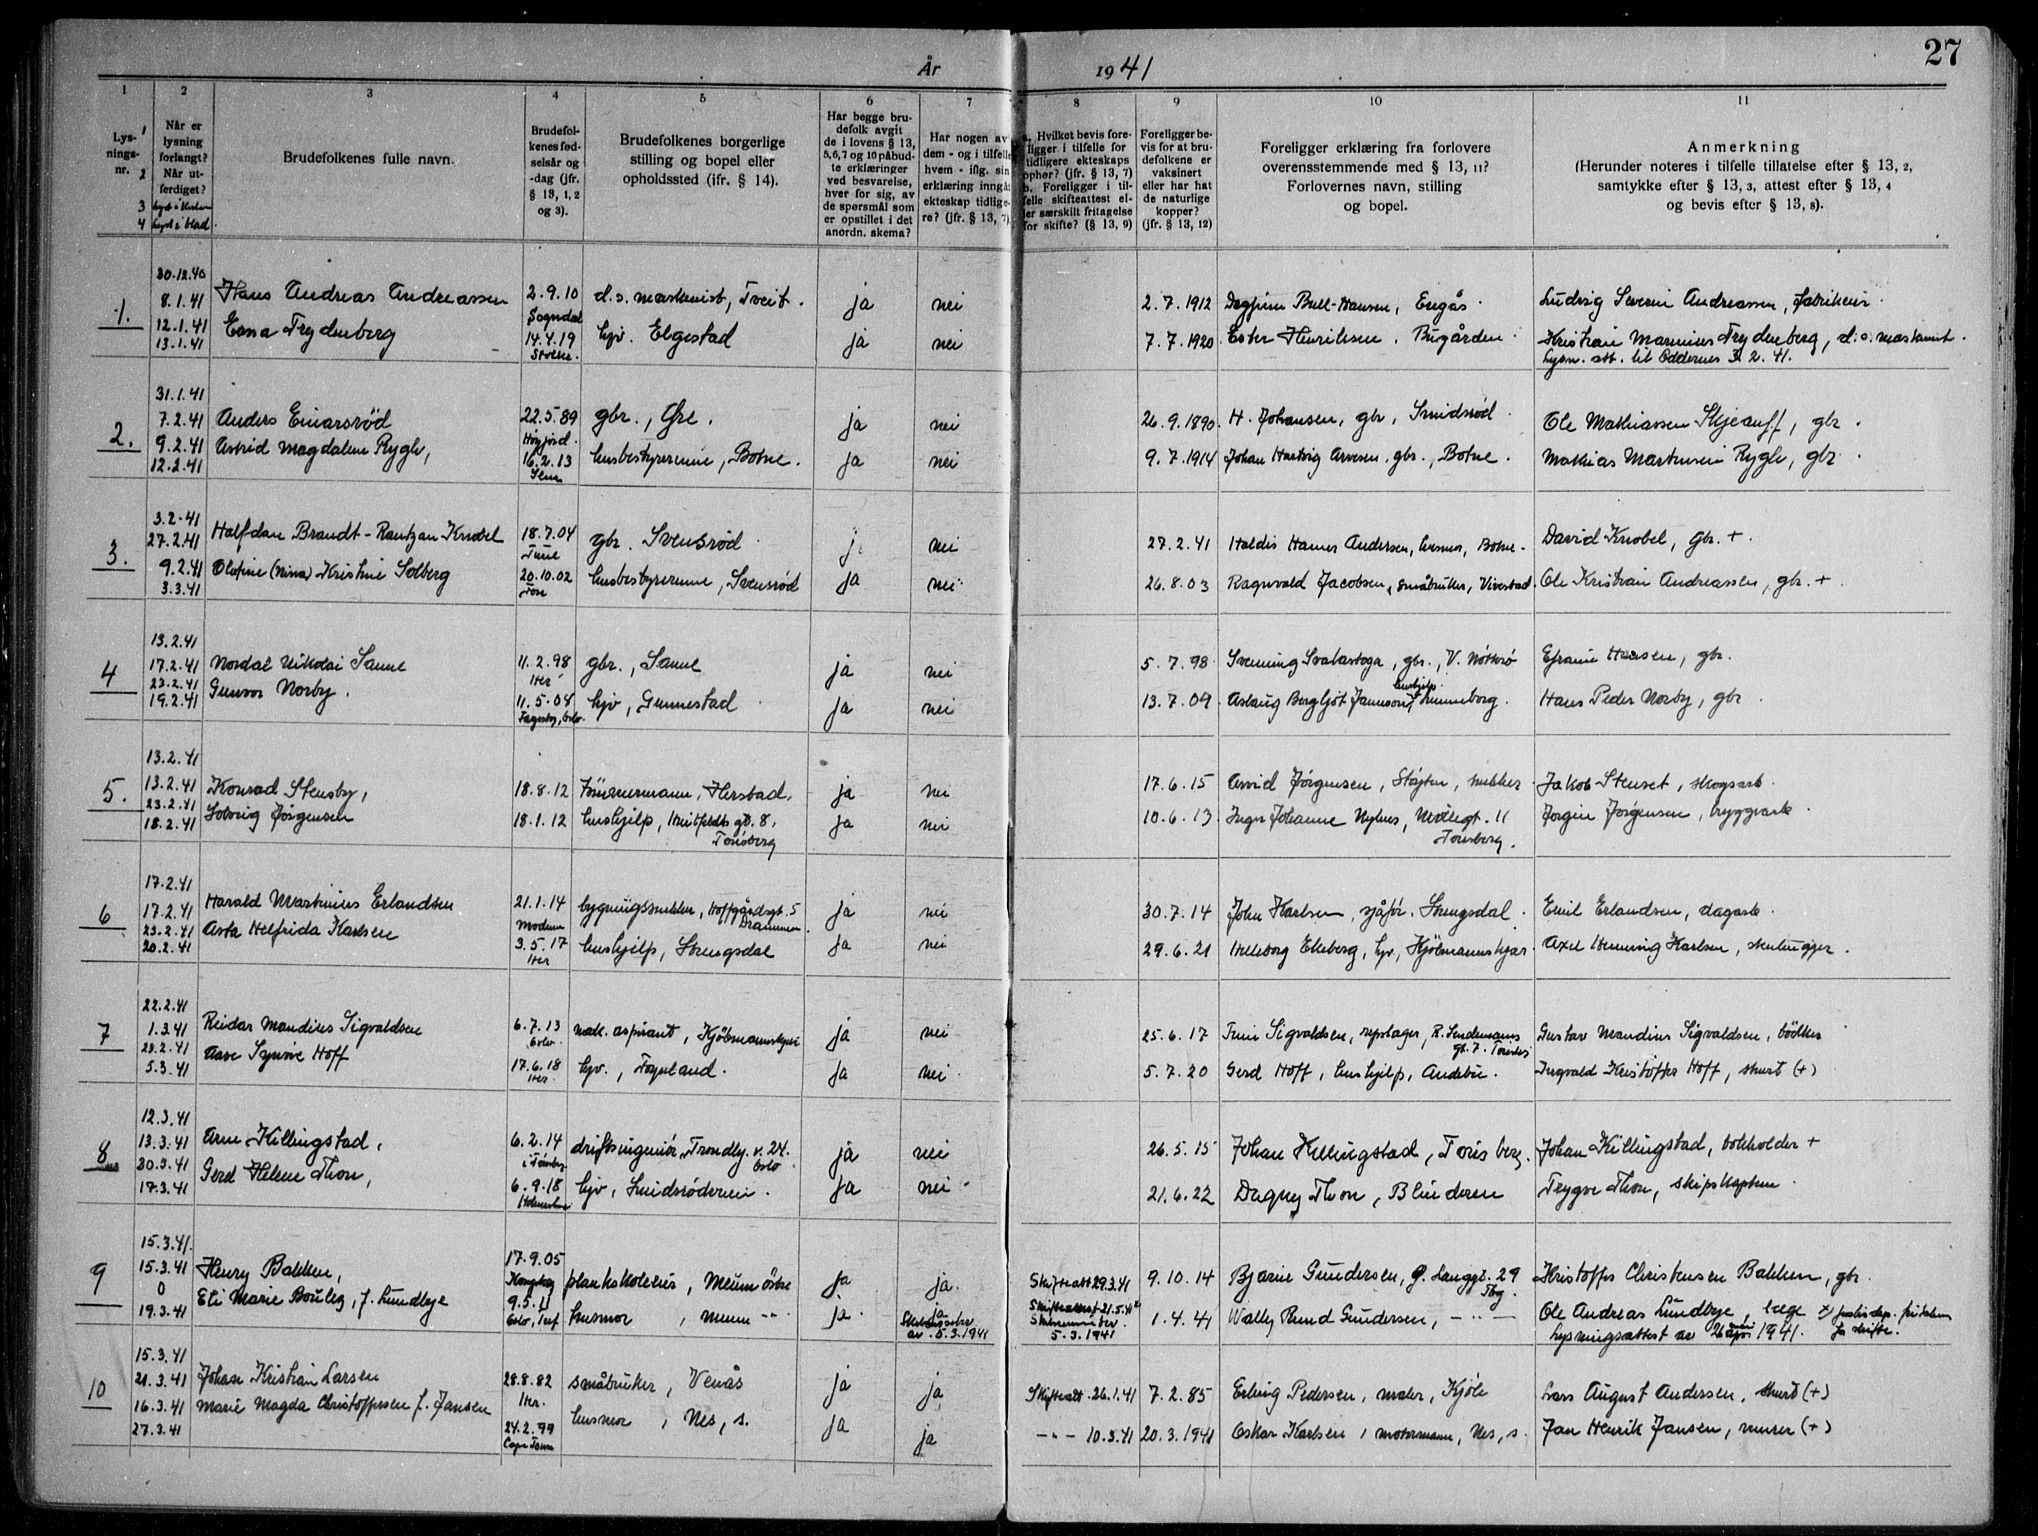 27
År 1941
1 2 3 4 5 6 7 8 9 10 11
Lysningsnr. 1 2 3 4
Når er lysning forlangt? Når utferdiget? lyst i kirken lyst i blad
Brudefolkenes fulle navn.
Brudefolkenes fødselsår og -dag (jfr. § 13, 1, 2 og 3).
Brudefolkenes borgerlige stilling og bopel eller opholdssted (ifr. § 14).
Har begge brudefolk avgit de i lovens § 13, 5, 6, 7 og 10 påbudte erklæringer ved besvarelse, hver for sig, av de spørsmål som er opstillet i det anordn. skema?
Har nogen av dem - og i tilfelle hvem - iflg. sin erklæring inngått ekteskap tidligere? (jfr. § 13, 7)
a. Hvilket bevis foreligger i tilfelle for tidligere ekteskaps ophør? (jfr. § 13, 7) b. Foreligger i tilfelle skifteattest eller særskilt fritagelse for skifte? (§ 13, 9)
Foreligger bevis for at brudefolkene er vaksinert eller har hat de naturlige kopper? (jfr. § 13, 12)
Foreligger erklæring fra forlovere overensstemmende med § 13, 11? Forlovernes navn, stilling og bopel.
Anmerkning (Herunder noteres i tilfelle tillatelse efter § 13, 2, samtykke efter § 13, 3, attest efter § 13, 4 og bevis efter § 13, 8).
1. 30.12.40 8.1.41 12.1.41 13.1.41
Hans Andreas Andreassen 2.9.10 Sogndal d.o. maskinist, Tveit. ja nei 2.7.1912 Dagfinn Bull-Hansen, Engås. Ludvig Severin Andreassen, fabrikeier.
Erna Trydenberg 14.4.19 Stokke. hjv. Elgestad ja nei 7.7.1920 Ester Henriksen, Bugården. Kristian Marinius Trydenberg, d.o. maskinist.
Lysn. att. til Oddernes 3.2.41.
2. 31.1.41 7.2.41 9.2.41 12.2.41
Anders Einarsrød 22.5.89 Høyjord. gbr., Øre. ja nei 26.9.1890 H. Johansen, gbr, Smidsrød. Ole Mathiassen Skjeauff, gbr.
Astrid Magdalene Rygh, 16.2.13 Sem husbestyrerinne, Botne. ja nei 9.7.1914 Johan Hartvig Arvesen, gbr., Botne. Mathias Martinsen Rygh, gbr.
3. 3.2.41 27.2.41 9.2.41 3.3.41
Halfdan Brandt-Rantzau Knobel 18.7.04 Tune gbr. Svensrød ja nei 27.2.41 Haldis Hamer Andersen, husmor, Botne. David Knobel, gbr. +
Olefine (Nina) Kristine Solberg 20.10.02 husbestyrerinne, Svensrød ja nei 26.8.03 Ragnvald Jacobsen, småbruker, Viverstad. Ole Kristian Andreassen, gbr. +
4 13.2.41 17.2.41 23.2.41 19.2.41
Nordal Nikolai Sanne 11.2.98 Her gbr., Sanne ja nei 5.7.98 Svenning Svalastoga, gbr., V. Nøtterø Efraim Hansen, gbr.
Gunvor Norby. 11.5.04 Fagerby, Oslo hjv, Gunnestad ja nei 13.7.09 Aslaug Bergljot Jamnson, hushjelp. Linneborg. Hans Peder Norby, gbr.
5. 13.2.41 13.2.41 23.2.41 18.2.41
Konrad Stensby, 18.8.12 tømmermann, Herstad, ja nei 17.6.15 Arvid Jørgensen, Sløyten, snekker. Jakob Stenset, skogsarb.
Solveig Jørgensen 18.1.12 hushjelp, Huitfeldts gt. 8, Tønsberg ja nei 10.6.13 Inger Johanne Nyhus, Møllegt. 11 Tønsberg. Jørgen Jørgensen, bryggearb.
6 17.2.41 17.2.41 23.2.41 20.2.41
Harald Martinius Erlandsen 21.1.14 Modum bygningssnekker, Hoffgårdsgt. 5 Drammen ja nei 30.7.14 John Karlsen, sjåfør, Strengsdal. Emil Erlandsen, dagarb.
Asta Helfrida Karlsen 3.5.17 Her hushjelp, Strengsdal ja nei 29.6.21 Hilleborg Ekeberg, hjv, Kjøbmannskjær Axel Henning Karlsen, stenhugger.
7 22.2.41 1.3.41 23.2.41 5.3.41
Reidar Mandius Sigvaldsen 6.7.13 Oslo mask. aspirant, Kjøbmannskjær ja nei 25.6.17 Tuni Sigvaldsen, repslager, R. Lendemanns gt. 7. Tønsberg Gustav Mandius Sigvaldsen, bødker
Aase Synnøve Hoff 17.6.18 Her. hjv., Føynland. ja nei 5.7.20 Gerd Hoff, hushjelp, Andebu. Ingvald Kristoffer Hoff, skurt (+)
8 12.3.41 13.3.41 30.3.41 17.3.41
Arne Killingstad, 6.2.14 i Tønsberg driftsingeniør, Trondhj. v. 24. Oslo ja nei 26.5.15 Johan Killingstad, Tønsberg. Johan Killingstad, bokholder +
Gerd Helene Thon, 6.9.18 Holmestrand hjv, Smidsrødveien. ja nei. 21.6.22 Dagny Thon, Blinderen Trygve Thon, skipskaptein.
9 15.3.41. 15.3.41 0 19.3.41
Henry Bakken, 17.9.05 Kongsberg plankskolerer, Meum østre ja ja. Skifteatt 29.3.41 9.10.14 Bjarne Gundersen, Ø. Langgt. 29 Tbg. Kristoffer Christensen Bakken, gbr.
Eli Marie Bouleg, f. Lundbye 9.5.11 Oslo, husmor, Meum -"- ja. ja Skilsmissebev. av 5.3.1941 Skifteattest 21.5.41 5.3.1941 1.4.41 Wally Rund Gundersen, -"- Ole Andreas Lundbye, læge x) justisdep. fritakelse for skifte.
Lysningsattest av 26 mai 1941.
10 15.3.41 21.3.41 16.3.41 27.3.41
Johan Kristian Larsen 28.8.82 Her. småbruker, Venås ja ja Skifteatt. 26.1.41 7.2.85 Erling Pedersen, maler, Kjøle Lars August Andersen, skurt (+)
Marie Magda Christoffersen f. Jansen 24.2.99 Cape Town husmor, Nes, s. ja ja -"- 10.3.41 20.3.1941 Oskar Karlsen, motormann, Nes, s. Jan Henrik Jansen, murer (+)